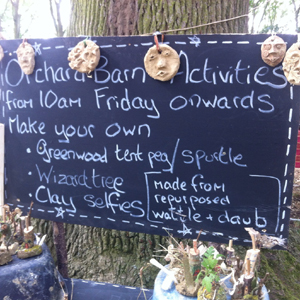 Orchard Barn Activities
from 10am Friday onwards
Make your own
• Greenwood tent peg/spurtle
• Wizardtree
• Clay selfies
made from
repurposed
wattle + daub